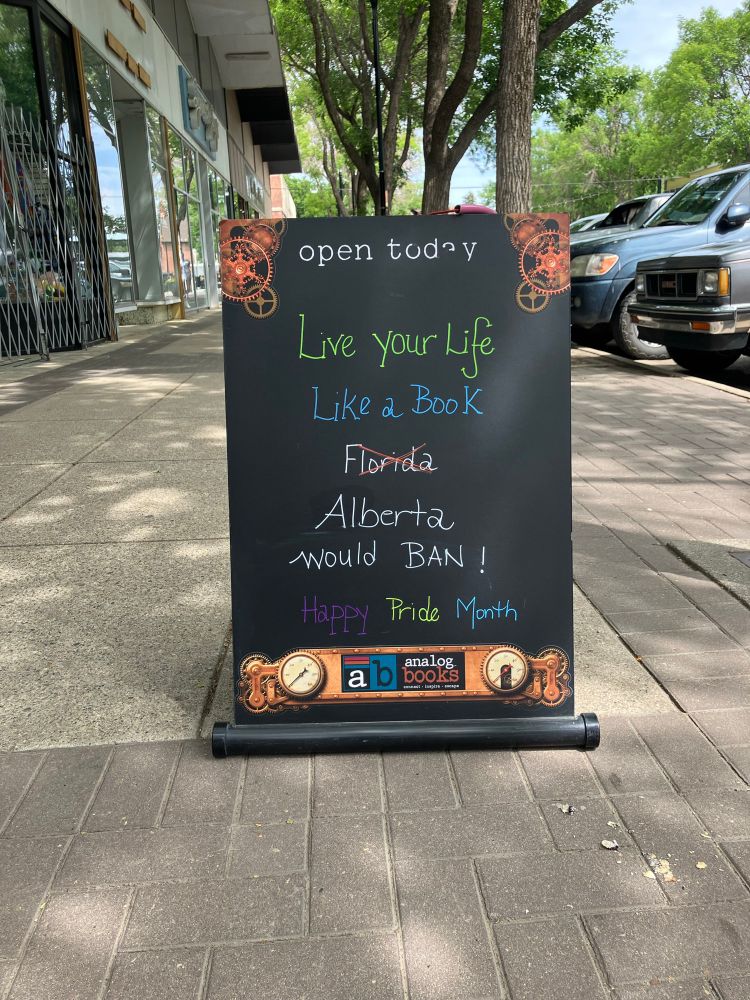 open today
Live your Life
Like a Book
Florida
Alberta
would BAN!
Happy Pride Month
ab analog books
connect · inspire · escape